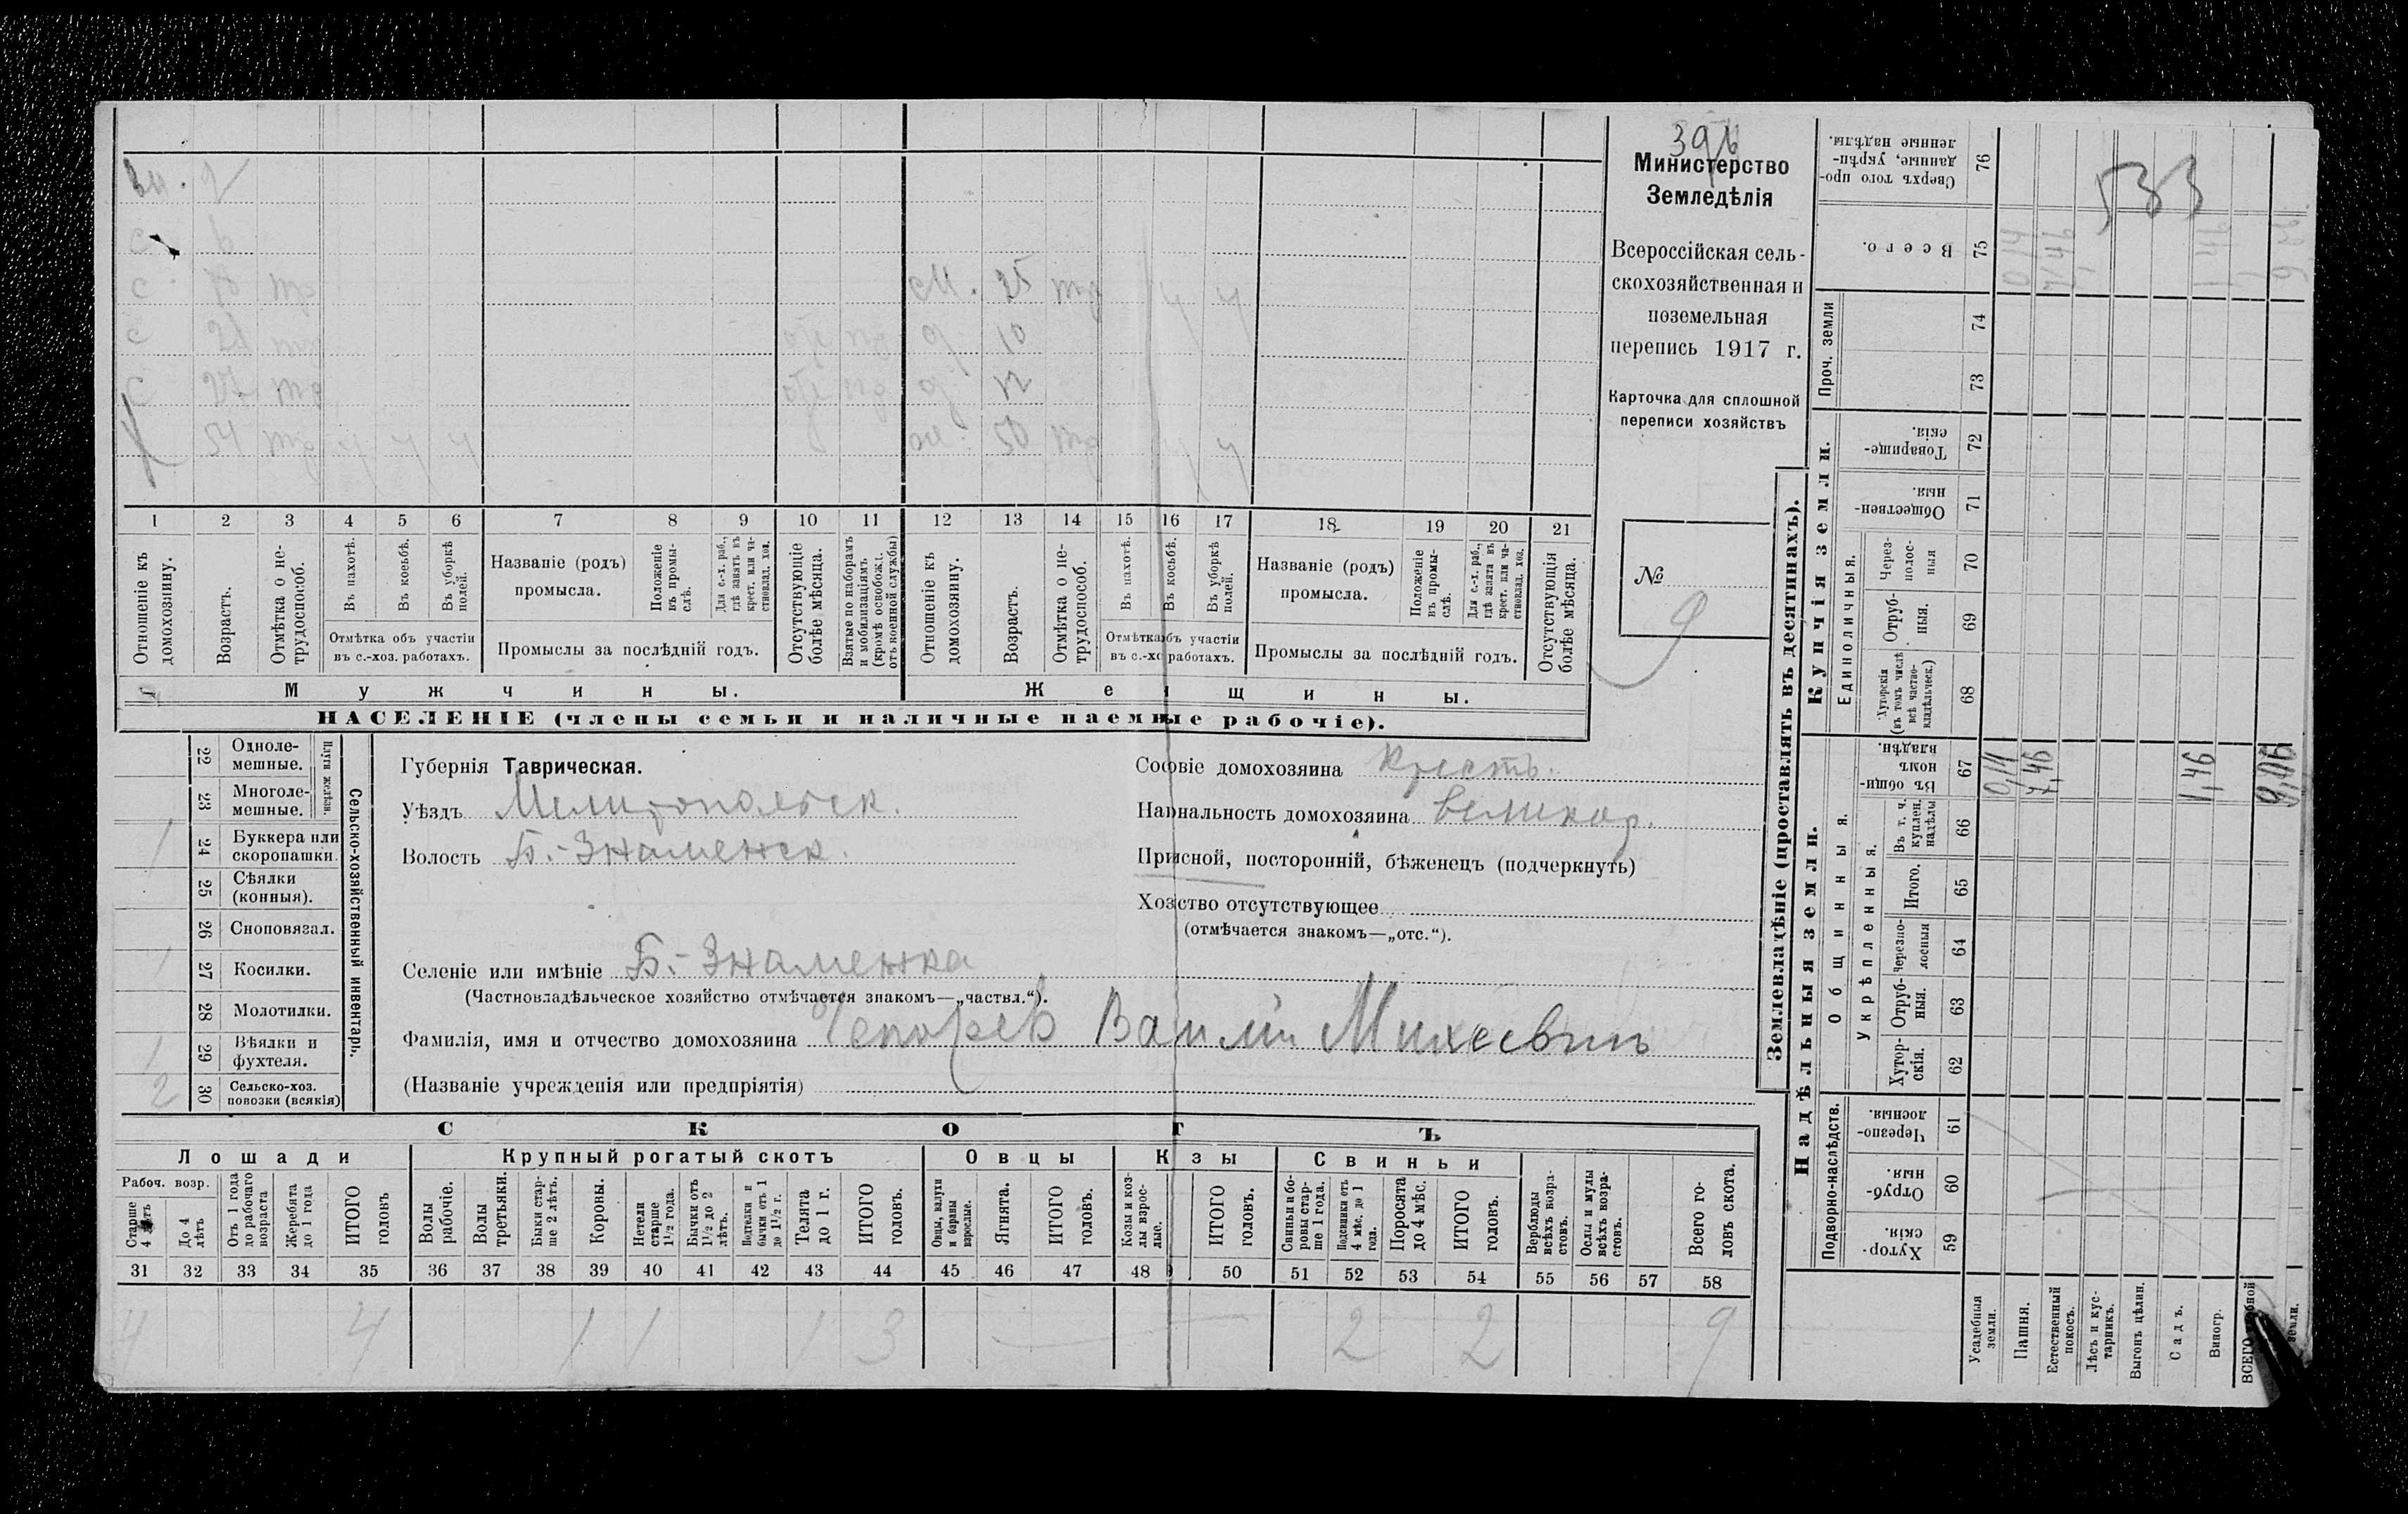 396
Министерство
Земледѣлія
Всероссійская сель-
скохозяйственная и
поземельная
перепись 1917 г.
Карточка для сплошной
переписи хозяйствъ
№
9
533
с 6
с тр см. 25 тр ч ч
с 21 тр отс д 10
с 27 тр отс д 12
54 тр ч ч ч 50 тр ч ч
1 2 3 4 5 6 7 8 9 10 11 12 13 14 15 16 17 18 19 20 21
Отношеніе къ домохозяину.
Возрастъ.
Отмѣтка о не-трудоспособ.
Въ пахотѣ.
Въ косьбѣ.
Въ уборкѣ полей.
Отмѣтка объ участіи
въ с.-хоз. работахъ.
Названіе (родъ)
промысла.
Положеніе въ промы-слѣ.
Для с.-х. раб., гдѣ занятъ въ крест. или ча-стновлад. хоз.
Промыслы за послѣдній годъ.
Отсутствующіе болѣе мѣсяца.
Взятые по наборамъ и мобилизаціямъ (кромѣ освобожд. отъ военной службы)
Отношеніе къ домохозяину.
Возрастъ.
Отмѣтка о не-трудоспособ.
Въ пахотѣ.
Въ косьбѣ.
Въ уборкѣ полей.
Отмѣтка объ участіи
въ с.-хо работахъ.
Названіе (родъ)
промысла.
Положеніе въ промы-слѣ.
Для с.-х. раб., гдѣ занята въ крест. или ча-стновлад. хоз.
Промыслы за послѣдній годъ.
Отсутствующія болѣе мѣсяца.
Мужчины.
Женщины.
НАСЕЛЕНІЕ (члены семьи и наличные наемные рабочіе).
Сельско-хозяйственный инвентарь.
Плуги желѣзн.
22 Одноле-мешные.
23 Многоле-мешные.
1 24 Буккера или скоропашки.
25 Сѣялки (конныя).
26 Сноповязал.
1 27 Косилки.
28 Молотилки.
1 29 Вѣялки и фухтеля.
2 30 Сельско-хоз. повозки (всякія)
Губернія Таврическая.
Уѣздъ Мелитопольск.
Волость Б.-Знаменск.
Селеніе или имѣніе Б.-Знаменка
(Частновладѣльческое хозяйство отмѣчается знакомъ—„частвл.“).
Фамилія, имя и отчество домохозяина Василій Михеевичъ
(Названіе учрежденія или предпріятія)
Сословіе домохозяина Крестъ.
Нацнальность домохозяина великор.
Приписной, посторонній, бѣженецъ (подчеркнуть)
Хозяйство отсутствующее
(отмѣчается знакомъ—„отс.“).
СКОТЪ
Лошади Крупный рогатый скотъ Овцы Козы Свиньи
Рабоч. возр.
Старше 4 лѣтъ
До 4 лѣтъ
Отъ 1 года до рабочаго возраста
Жеребята до 1 года
ИТОГО головъ
Волы рабочіе.
Волы третьяки.
Быки стар-ше 2 лѣтъ.
Коровы.
Нетели старше 1½ года.
Бычки отъ 1½ до 2 лѣтъ.
Подтелки и бычки отъ 1 до 1½ г.
Телята до 1 г.
ИТОГО головъ.
Овцы, валухи и бараны взрослые.
Ягнята.
ИТОГО головъ.
Козы и коз-лы взрос-лые.
ИТОГО головъ.
Свиньи и бо-ровы стар-ше 1 года.
Подсвинки отъ 4 мѣс. до 1 года.
Поросята до 4 мѣс.
ИТОГО головъ.
Верблюды всѣхъ возра-стовъ.
Ослы и мулы всѣхъ возра-стовъ.
Всего го-ловъ скота.
31 32 33 34 35 36 37 38 39 40 41 42 43 44 45 46 47 48 50 51 52 53 54 55 56 57 58
4 4 1 1 1 3 2 2 9
Землевладѣніе (проставлять въ десятинахъ).
Надѣльныя земли.
Купчія земли.
Проч. земли
Подворно-наслѣдств.
Общинныя.
Укрѣпленныя.
Единоличныя.
59 Хутор-скія.
60 Отруб-ныя.
61 Черезпо-лосныя.
62 Хутор-скія.
63 Отруб-ныя.
64 Черезпо-лосныя
65 Итого.
66 Въ т. ч. куплен. надѣлы
67 Въ общин-номъ владѣн.
68 Хуторскія (въ томъ числѣ всѣ частно-владѣльческ.)
69 Отруб-ныя.
70 Через-полос-ныя
71 Обществен-ныя.
72 Товарище-скія.
73
74
75 Всего.
76 Сверхъ того про-данные, укрѣп-ленные надѣлы.
Усадебныя земли. 0,14 0,14
Пашня. 7,46 7,46
Естественный покосъ.
Лѣсъ и кус-тарникъ.
Выгонъ цѣлин.
Садъ.
Виногр. 1,46 1,46
ВСЕГО земли. 9,06